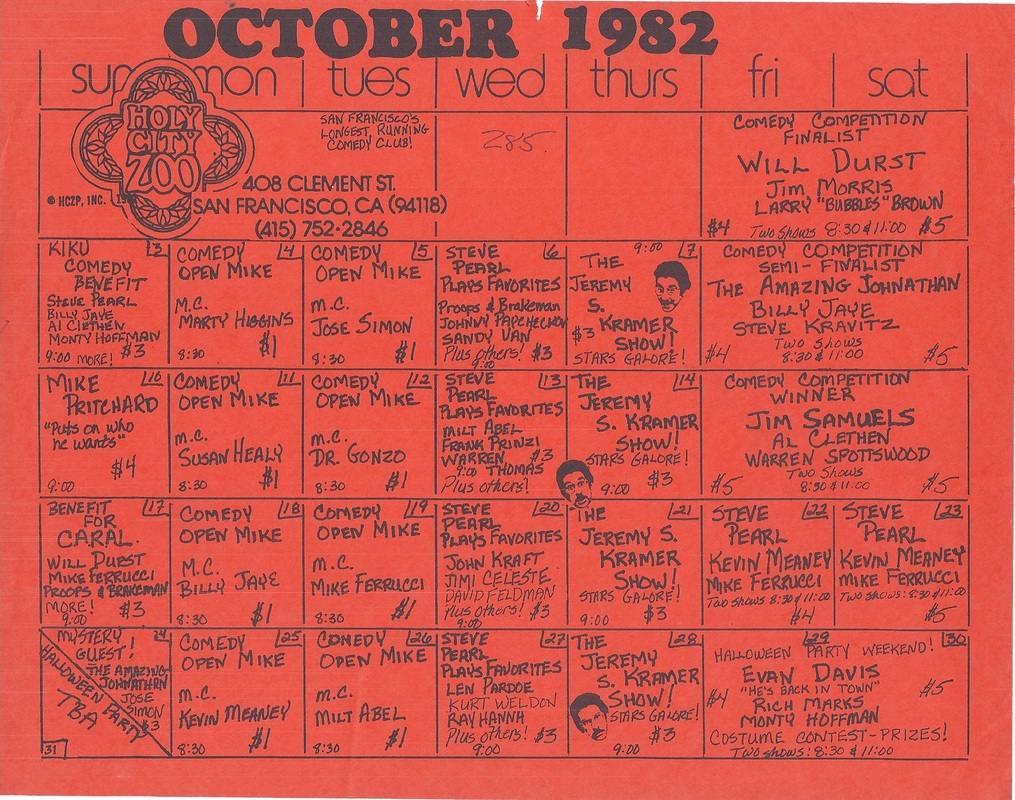 OCTOBER 1982
sun mon tues wed thurs fri sat
HOLY
CITY
ZOO
© HCZP, INC.
SAN FRANCISCO'S
LONGEST RUNNING
COMEDY CLUB!
408 CLEMENT ST.
SAN FRANCISCO, CA (94118)
(415) 752-2846
285.
COMEDY COMPETITION
FINALIST
WILL DURST
JIM MORRIS
LARRY "BUBBLES" BROWN
$4 TWO SHOWS 8:30 & 11:00 $5
KIKU 3
COMEDY
BENEFIT
STEVE PEARL
BILLY JAYE
Al CLETHEN
MONTY HOFFMAN
9:00 MORE! $3
COMEDY 4
OPEN MIKE
M.C.
MARTY HIGGINS
8:30 $1
COMEDY 5
OPEN MIKE
M.C.
JOSE SIMON
8:30 $1
STEVE 6
PEARL
PLAYS FAVORITES
Proops & Brakeman
JOHNNY PAPCHECHON
SANDY VAN
Plus others! $3
9:00
9:00 7
THE
JEREMY
S.
$3 KRAMER
SHOW!
STARS GALORE!
COMEDY COMPETITION
SEMI-FINALIST
THE AMAZING JOHNATHAN
BILLY JAYE
STEVE KRAVITZ
TWO SHOWS
$4 8:30 & 11:00 $5
MIKE 10
PRITCHARD
"Puts on who
he wants"
$4
9:00
COMEDY 11
OPEN MIKE
M.C.
SUSAN HEALY
8:30 $1
COMEDY 12
OPEN MIKE
M.C.
DR. GONZO
8:30 $1
STEVE 13
PEARL
PLAYS FAVORITES
MILT ABEL
FRANK PRINZI
WARREN $3
9:00 THOMAS
Plus others!
THE 14
JEREMY
S. KRAMER
SHOW!
STARS GALORE!
9:00 $3
COMEDY COMPETITION
WINNER
JIM SAMUELS
AL CLETHEN
WARREN SPOTTSWOOD
TWO SHOWS
$5 8:30 & 11:00 $5
BENEFIT 17
FOR
CARAL.
WILL DURST
MIKE FERRUCCI
PROOPS & BRAKEMAN
MORE! $3
9:00
COMEDY 18
OPEN MIKE
M.C.
BILLY JAYE
8:30 $1
COMEDY 19
OPEN MIKE
M.C.
MIKE FERRUCCI
8:30 $1
STEVE 20
PEARL
PLAYS FAVORITES
JOHN KRAFT
JIMI CELESTE
DAVID FELDMAN
Plus others! $3
9:00
THE 21
JEREMY S.
KRAMER
SHOW!
STARS GALORE!
9:00 $3
STEVE 22
PEARL
KEVIN MEANEY
MIKE FERRUCCI
TWO SHOWS 8:30 & 11:00
$4
STEVE 23
PEARL
KEVIN MEANEY
MIKE FERRUCCI
TWO SHOWS: 8:30 & 11:00
$5
MYSTERY 24
GUEST!
THE AMAZING
JOHNATHAN
JOSE
SIMON
$3
HALLOWEEN PARTY
TBA
31
COMEDY 25
OPEN MIKE
M.C.
KEVIN MEANEY
8:30 $1
COMEDY 26
OPEN MIKE
M.C.
MILT ABEL
8:30 $1
STEVE 27
PEARL
PLAYS FAVORITES
LEN PARDOE
KURT WELDON
RAY HANNA
Plus others! $3
9:00
THE 28
JEREMY
S. KRAMER
SHOW!
STARS GALORE!
$3
9:00
29 30
HALLOWEEN PARTY WEEKEND!
EVAN DAVIS
$4 "HE'S BACK IN TOWN" $5
RICH MARKS
MONTY HOFFMAN
COSTUME CONTEST-PRIZES!
TWO SHOWS: 8:30 & 11:00